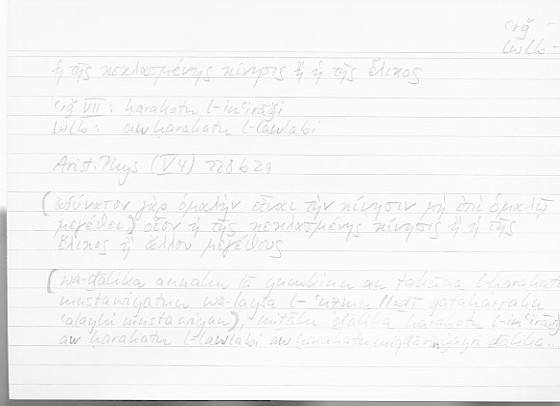 ʿrǧ –
lwlb –
ἡ τῆς κεκλασμένης κίνησις ἢ ἡ τῆς ἕλικος
ʿrǧ VII: ḥarakatu l-inʿirāǧi
lwlb: aw ḥarakatu l-lawlabi
Arist. Phys (V 4) 228b24
(ἀδύνατον γὰρ ὁμαλὴν εἶναι τὴν κίνησιν μὴ ἐπὶ ὁμαλῷ
μεγέθει) οἷον ἡ τῆς κεκλασμένης κίνησις ἢ ἡ τῆς
ἕλικος ἢ ἄλλου μεγέθους
(wa-ḏālika annahu lā yumkinu an takūna l-ḥarakatu
mustawiyatan wa-laysa l-ʿiẓamu llaḏī yataḥarraku
ʿalayhi mustawiyan), miṯālu ḏālika ḥarakatu l-inʿirāǧi
aw ḥarakatu l-lawlabi aw ḥarakatu miqdārin ġayri ḏālika...